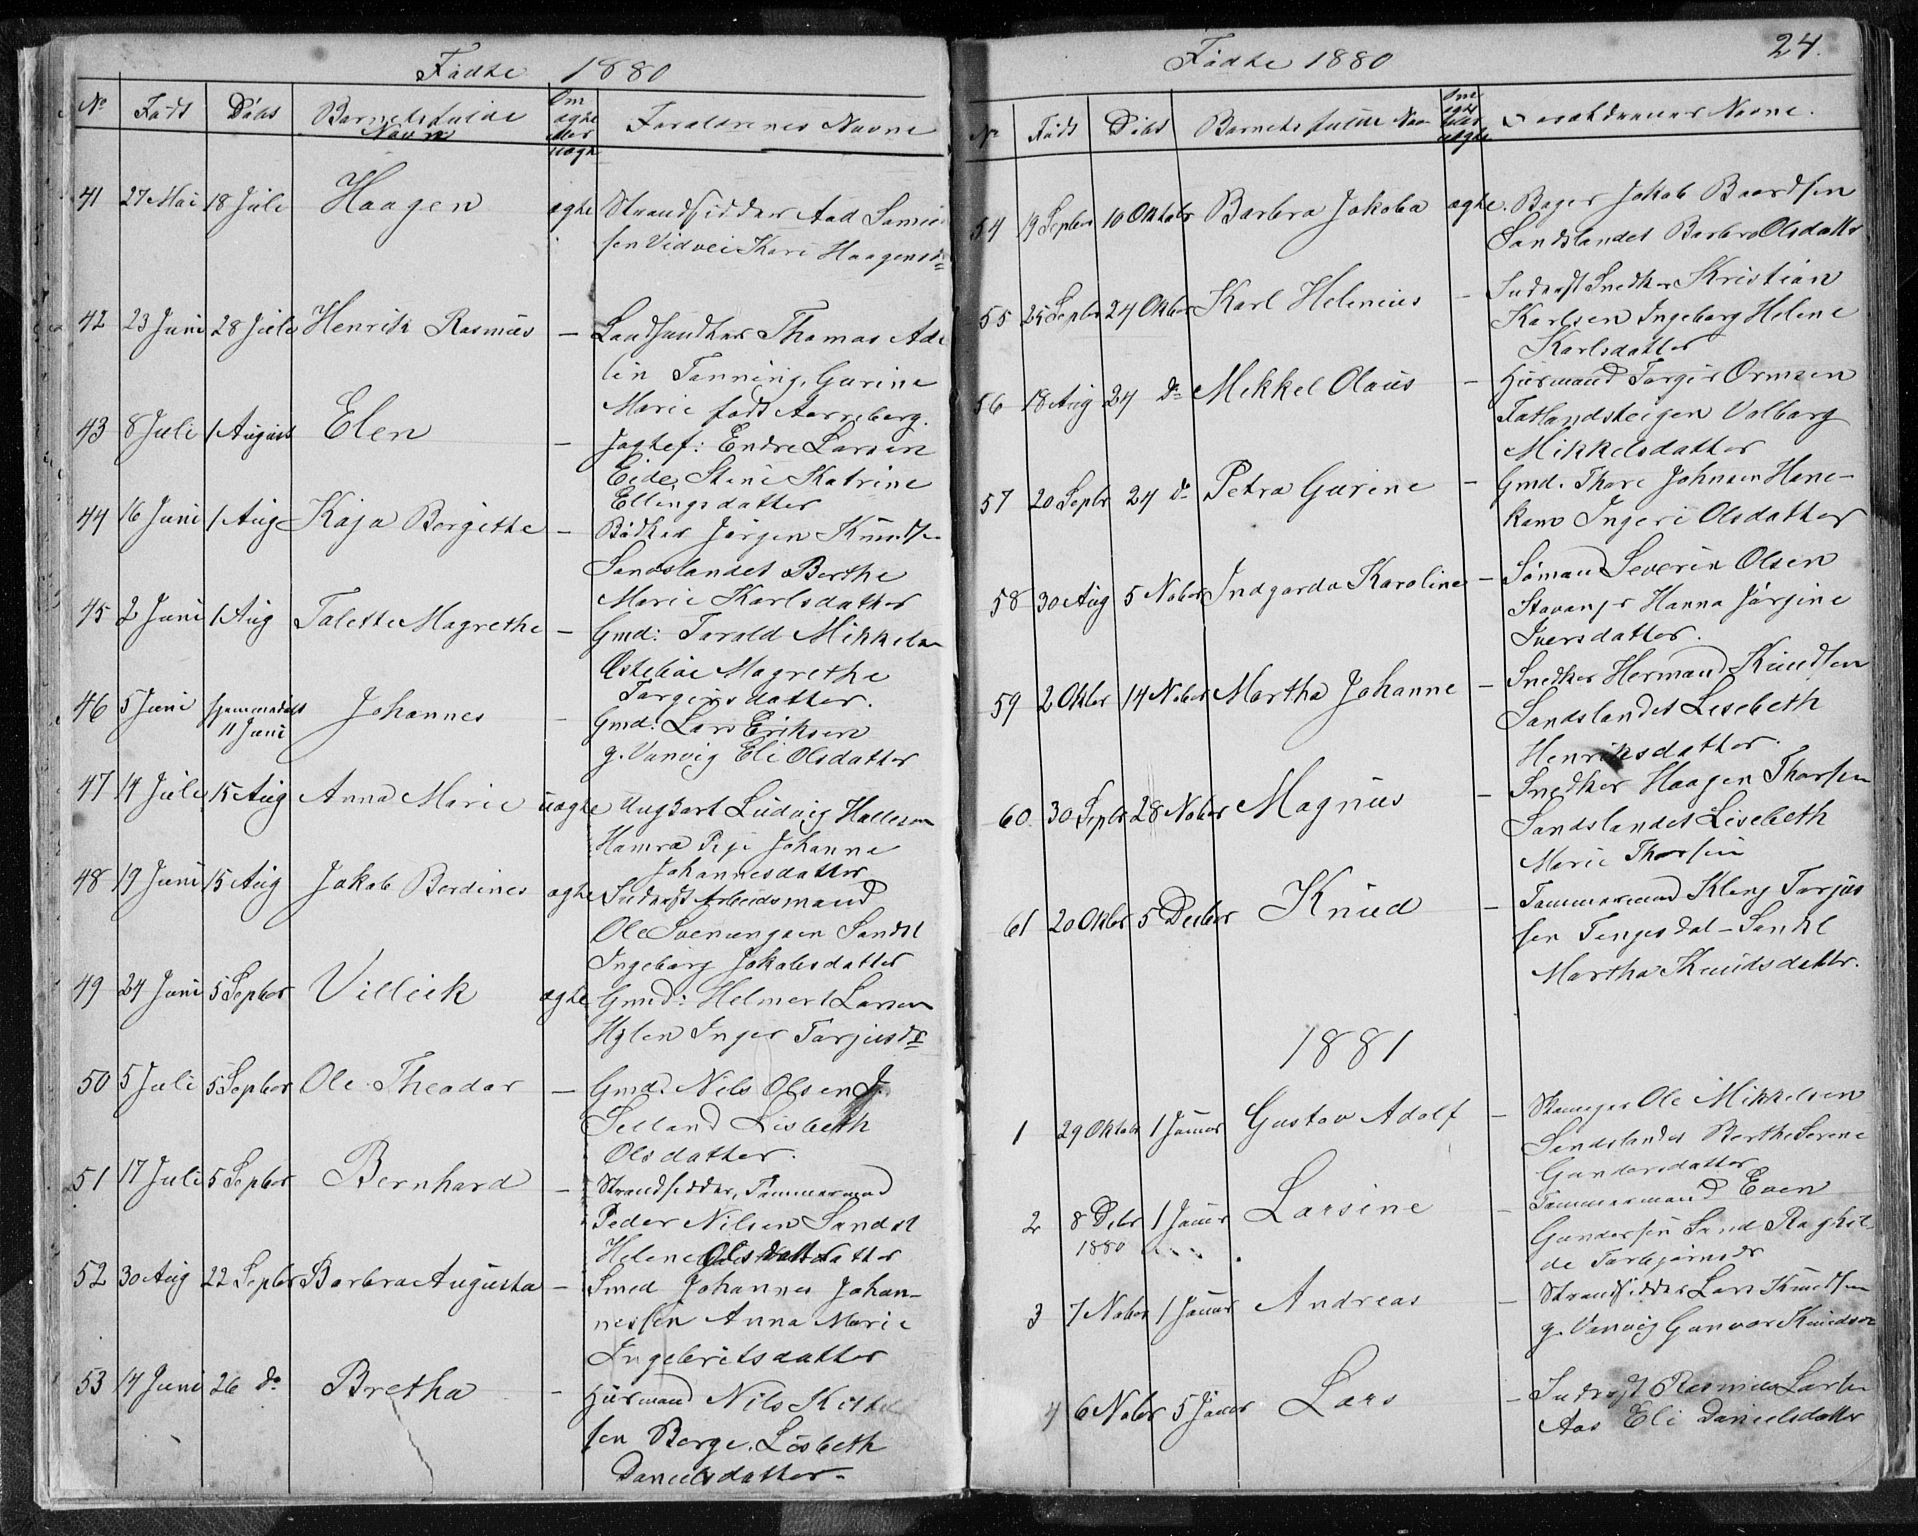 Fødte 1880
No Født Døbt Barnets fulde Navn Om ægte eller uægte Forældrenes Navne
41 27 Mai 18 Juli Haagen ægte Strandsidder Aad
sen Vidvei Kari Haagensdr
42 23 Juni 28 Juli Henrik Rasmus — Landhandler Thomas
Tanning, Gurine
Marie født
43 8 Juli 1 August Elen — Jagtef: Endre Larsen
Eide, Stine Katrine
Ellingsdatter
44 16 Juni 1 Aug Kaja Bergithe — Bødker Jørgen Knudsen
Sandslandet Berthe
Marie Karlsdatter
45 2 Juni 1 Aug Talette Magrethe — Gmd: Tarald Mikkelsen
Østebøe Magrethe
Torgersdatter.
46 5 Juni hjemmedøbt 11 Juni Johannes — Gmd: Lars Eriksen
g. Vanvig Eli Olsdatter
47 14 Juli 15 Aug Anna Marie uægte Ungkarl Ludvig Hallesen
Hamra Pige Johanna
Johannesdatter
48 19 Juni 15 Aug Jakob Berdines ægte Inderst Arbeidsmand
Ole Svenungsen Sandsl
Ingeborg Jakobsdatter
49 24 Juni 5 Septber Villeik ægte Gmd: Helmer Larsen
Hylen Inger Tarjeisdr
50 5 Juli 5 Septber Ole Theodor — Gmd. Nels Olsen J.
Selland Lisbeth
Olsdatter.
51 17 Juli 5 Septber Bernhard — Strandsidder, Tømmermand
Peder Nilsen Sandsl
Helene Olsdatter
52 30 Aug 22 Septbr Barbra Augusta — Smed Johannes Johan-
nessen Anna Marie
Ingebritsdatter
53 14 Juni 26 do Bretha — Husmand Nils
sen Berge. Lisbeth
Danielsdatter.
Fødte 1880 24.
No Født Døbt Barnets fulde Nav Om ægte eller uægte Forældrenes Navne.
54 19 Septbr 10 Oktobr Barbra Jakoba ægte. Bager Jakob Baardsen
Sandslandet Barbro Olsdatter
55 25 Septbr 24 Oktbr Karl Helenius — Inderst Snedker Kristian
Karlsen Ingeborg Helene
Karlsdatter
56 18 Aug 24 do Mikkel Olaus — Husmand Torger Ormsen
Fatlandsteigen Valborg
Mikkelsdatter
57 20 Septbr 24 do Petra Gurine — Gmd. Thore Johnsen Hane-
kam Ingeri Olsdatter
58 30 Aug 5 Nobr Indgarda Karoline — Sømand Severin Olsen
Stavanger Hanna Jørgine
Iversdatter.
59 2 Oktbr 14 Nobr Martha Johanne — Snedker Hermand Knudsen
Sandslandet Lisebeth
Henriksdatter.
60. 30 Septbr 28 Nobr Magnus — Snedker Haagen Thorsen
Sandslandet Lisebeth
Marie Thorsen
61 20 Oktbr 5 Decbr Knud — Tømmermand Kleng Tarjei
sen Tengesdal - Sandsl
Martha Knudsdatter.
1881
1 29 Oktobr 1 Januar Gustav Adolf — Ole Mikkelsen
Sandslandet Berthe Serene
Gundersdatter
2 8 Debr 1880 1 Januar Larsine — Tømmermand Even
Gundersen Sand Raghil
de Torbjørnsdr
3 7 Nobr 1 Januar Andreas — Strandsidder Lars Knudsen
g. Vanvig Gunvor Knudsdr
4 6 Nobr 5 Januar Lars — Inderst Rasmus Larsen
Aas Eli Danielsdatter